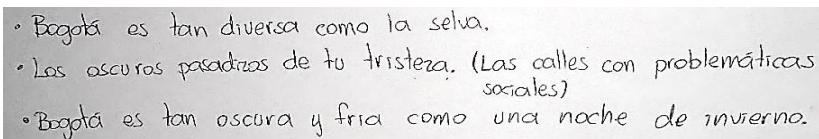 • Bogotá es tan diversa como la selva.
• Los oscuros pasadizos de tu tristeza. (Las calles con problemáticas
sociales)
• Bogotá es tan oscura y fria como una noche de invierno.